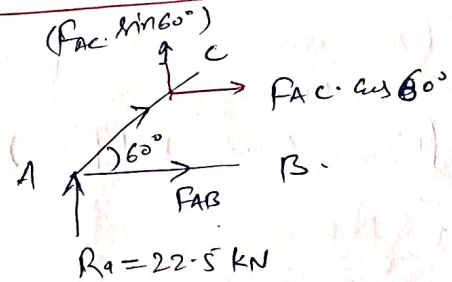 (FAC. sin60°)
C
FAC. cos 60°
60°
A
B.
FAB
Ra = 22.5 KN